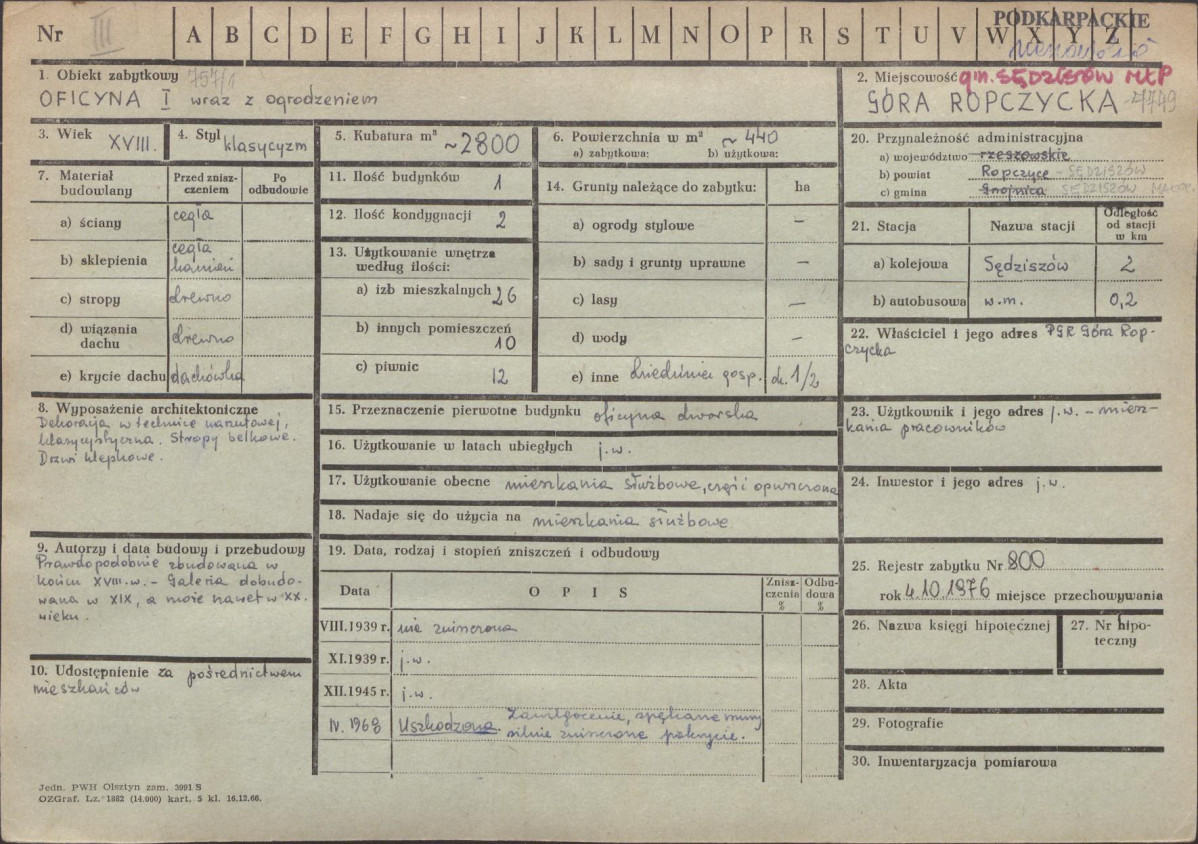 Nr III A B C D E F G H I J K L M N O P R S T U V W X Y Z
PODKARPACKIE
1. Obiekt zabytkowy 757/1
OFICYNA I wraz z ogrodzeniem
2. Miejscowość gm. SĘDZISZÓW MŁP
GÓRA ROPCZYCKA
3. Wiek XVIII.
4. Styl klasycyzm
5. Kubatura m³ ~2800
6. Powierzchnia w m² ~440
a) zabytkowa: b) użytkowa:
7. Materiał budowlany
Przed znisz-
czeniem
Po
odbudowie
a) ściany cegła
b) sklepienia cegła
kamień
c) stropy drewno
d) wiązania
dachu drewno
e) krycie dachu dachówka
11. Ilość budynków 1
12. Ilość kondygnacji 2
13. Użytkowanie wnętrza
według ilości:
a) izb mieszkalnych 26
b) innych pomieszczeń
10
c) piwnic 12
14. Grunty należące do zabytku: ha
a) ogrody stylowe –
b) sady i grunty uprawne –
c) lasy –
d) wody –
e) inne dziedziniec gosp. ok. 1/2
20. Przynależność administracyjna
a) województwo rzeszowskie
b) powiat Ropczyce - SĘDZISZÓW
c) gmina Gnojnica SĘDZISZÓW MAŁP.
21. Stacja
Nazwa stacji
Odległość
od stacji
w km
a) kolejowa Sędziszów 2
b) autobusowa w.m. 0,2
22. Właściciel i jego adres PGR Góra Rop-
czycka
8. Wyposażenie architektoniczne
Dekoracja w technice narzutowej,
klasycystyczna. Stropy belkowe.
Drzwi klepkowe.
15. Przeznaczenie pierwotne budynku oficyna dworska
16. Użytkowanie w latach ubiegłych j.w.
17. Użytkowanie obecne mieszkania służbowe, część opuszczona
18. Nadaje się do użycia na mieszkania służbowe
23. Użytkownik i jego adres j.w. - miesz-
kania pracowników
24. Inwestor i jego adres j.w.
9. Autorzy i data budowy i przebudowy
Prawdopodobnie zbudowana w
końcu XVIII.w. - Galeria dobudo-
wana w XIX, a może nawet w XX.
wieku.
10. Udostępnienie za pośrednictwem
mieszkańców
19. Data, rodzaj i stopień zniszczeń i odbudowy
Data
OPIS
Znisz-
czenia
%
Odbu-
dowa
%
VIII.1939 r. nie zniszczona
XI.1939 r. j.w.
XII.1945 r. j.w.
IV. 1968 Uszkodzona. Zawilgocenie, spękane mury
silnie zniszczone pokrycie.
25. Rejestr zabytku Nr 800
rok 4.10.1976 miejsce przechowywania
26. Nazwa księgi hipotecznej
27. Nr hipo-
teczny
28. Akta
29. Fotografie
30. Inwentaryzacja pomiarowa
Jedn. PWH Olsztyn zam. 3991 S
OZGraf. Lz. 1882 (14.000) kart. 5 kl. 16.12.66.